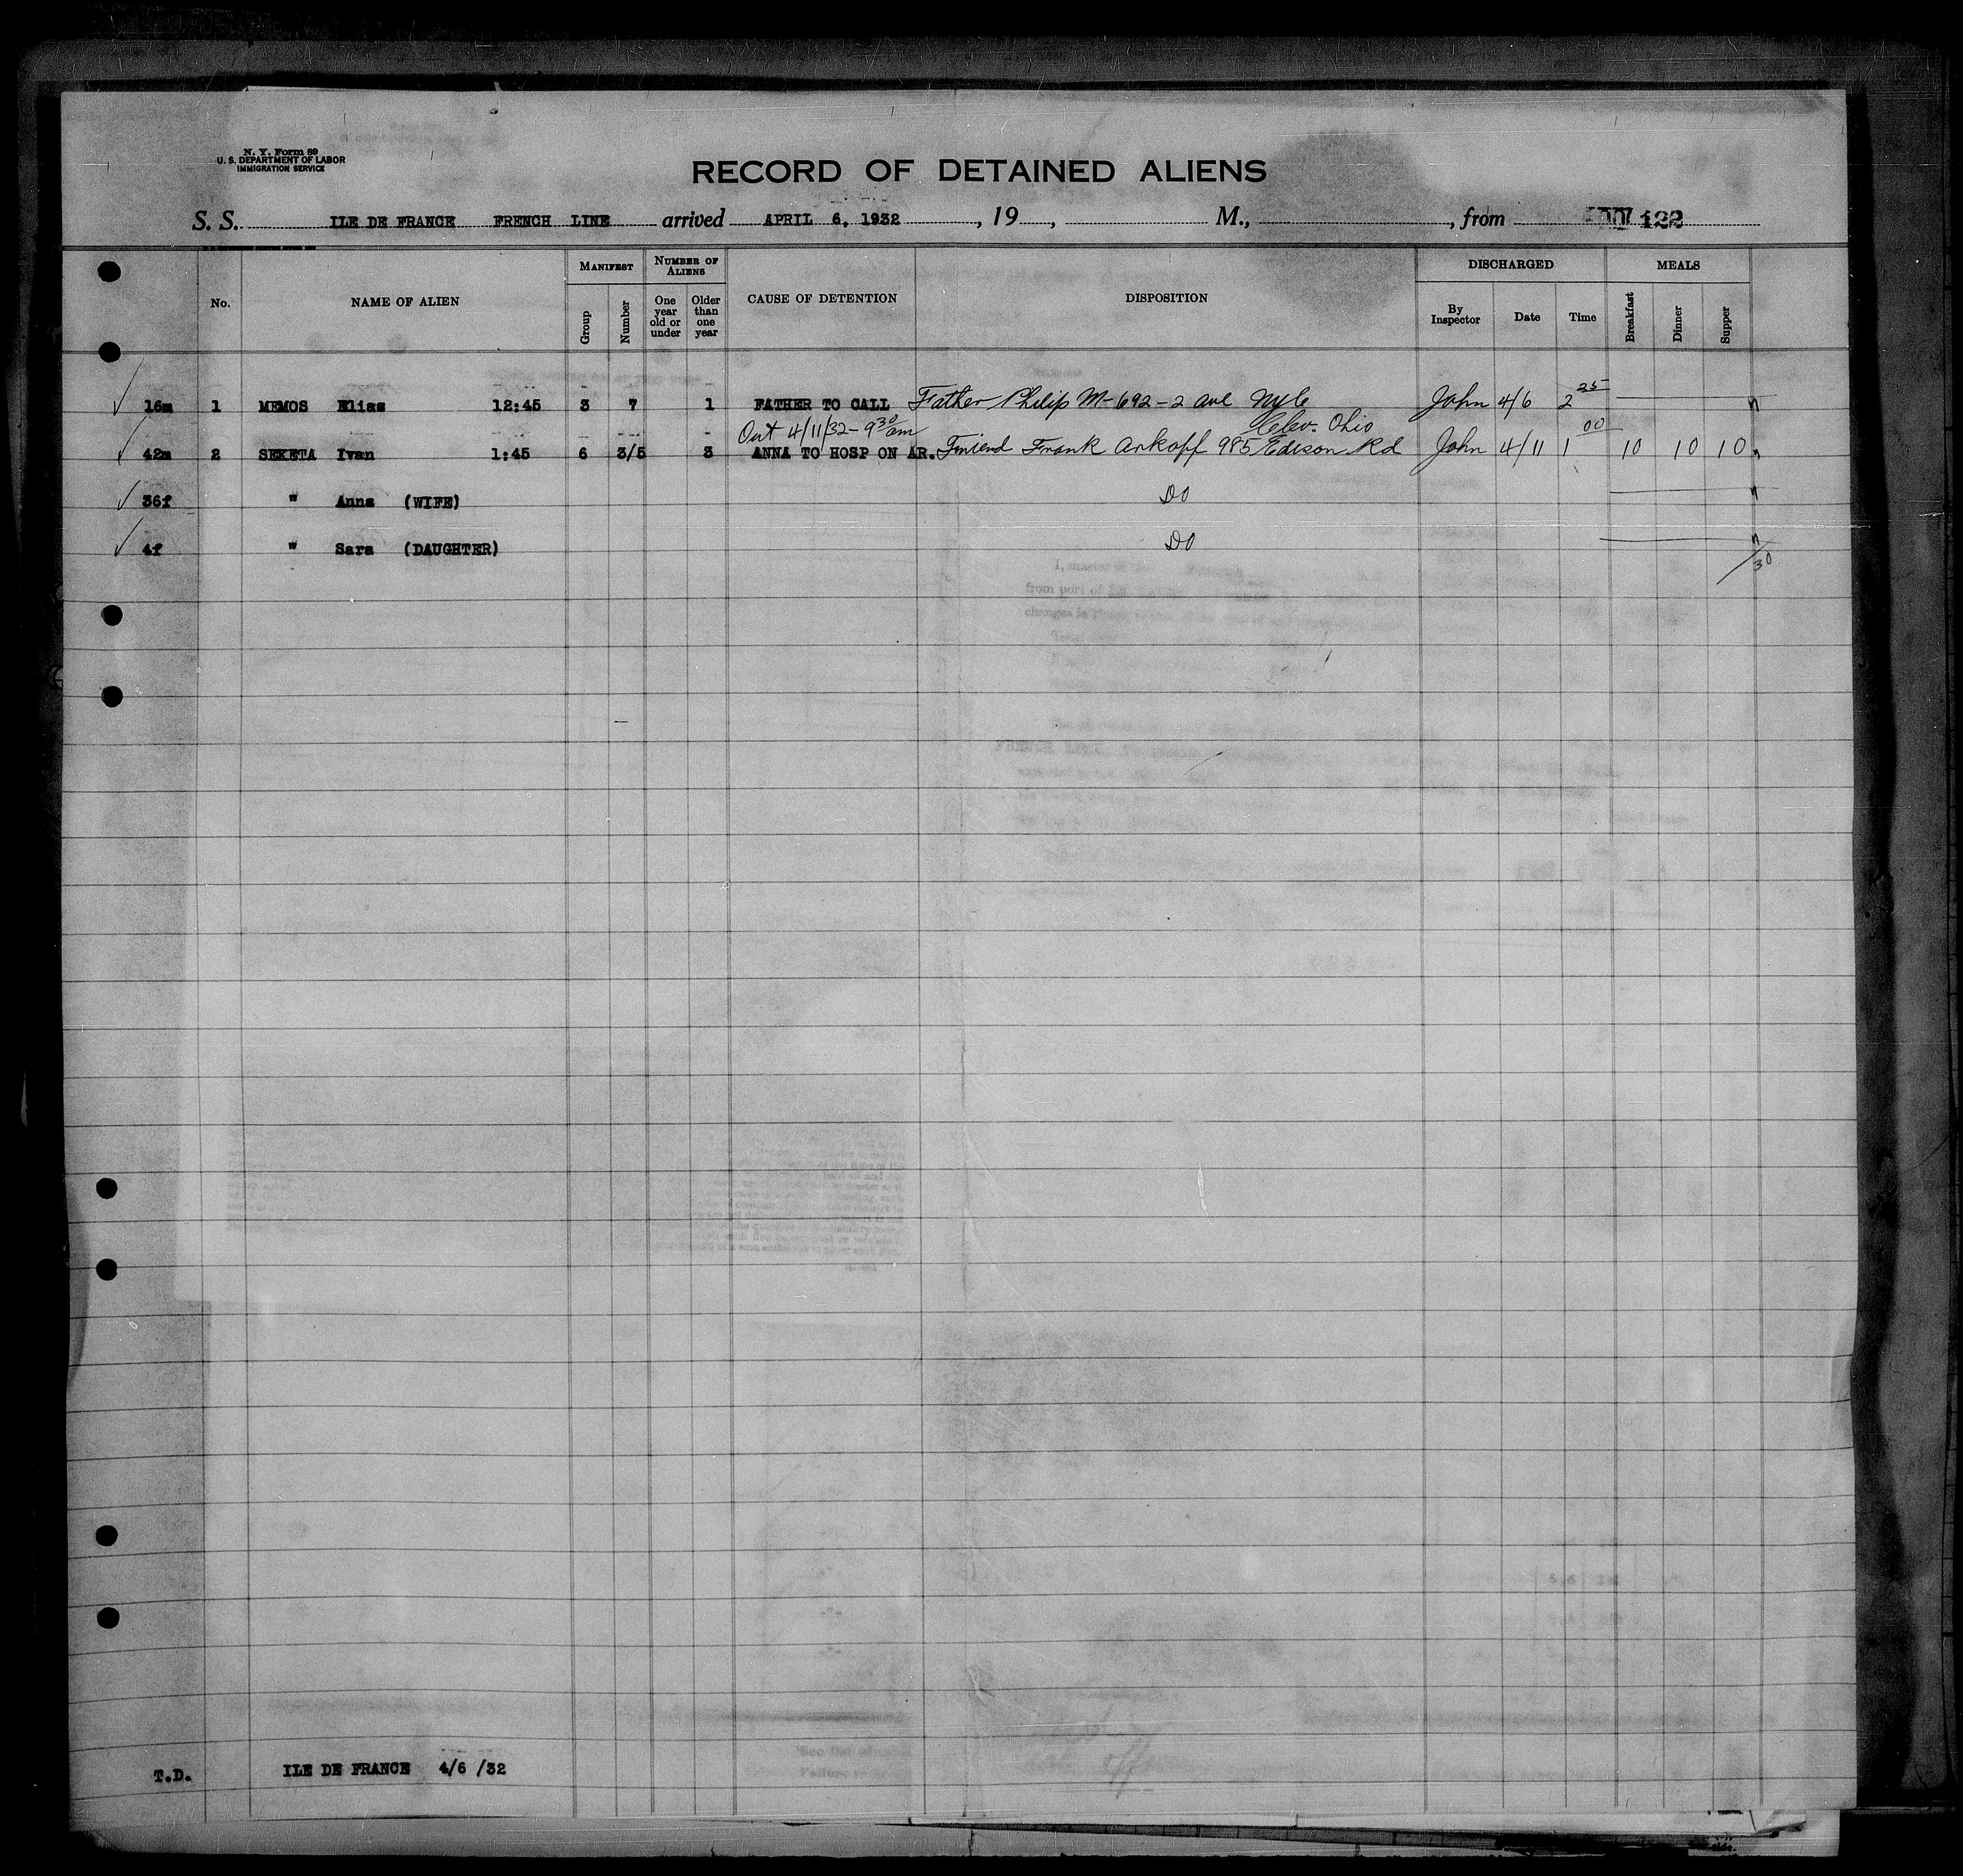 N. Y. Form 89
U. S. DEPARTMENT OF LABOR
IMMIGRATION SERVICE
RECORD OF DETAINED ALIENS
S. S. ILE DE FRANCE FRENCH LINE arrived APRIL 6, 1932 , 19 , M., , from 122
No. NAME OF ALIEN MANIFEST Group Number NUMBER OF ALIENS One year old or under Older than one year CAUSE OF DETENTION DISPOSITION DISCHARGED By Inspector Date Time MEALS Breakfast Dinner Supper
16m 1 MEMOS Elias 12:45 3 7 1 FATHER TO CALL Father Philip M- 692-2 ave NYC John 4/6 2 25
Out 4/11/32 - 9 30 am Clev. Ohio
42m 2 SEKETA Ivan 1:45 6 3/5 3 ANNA TO HOSP ON AR. Friend Frank Arkoff 985 Edison Rd John 4/11 1 00 10 10 10
36f " Anna (WIFE) DO
4f " Sara (DAUGHTER) DO
30
T.D. ILE DE FRANCE 4/6 /32